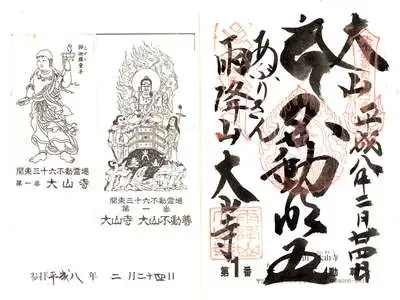 関東三十六不動霊場
第一番 大山寺
関東三十六不動霊場
第一番
大山寺 大山不動尊
参拝 平成八年 二月二十四日
大山
平成八年二月廿四日
不動明王
あふりさん
雨降山 大山寺
第1番